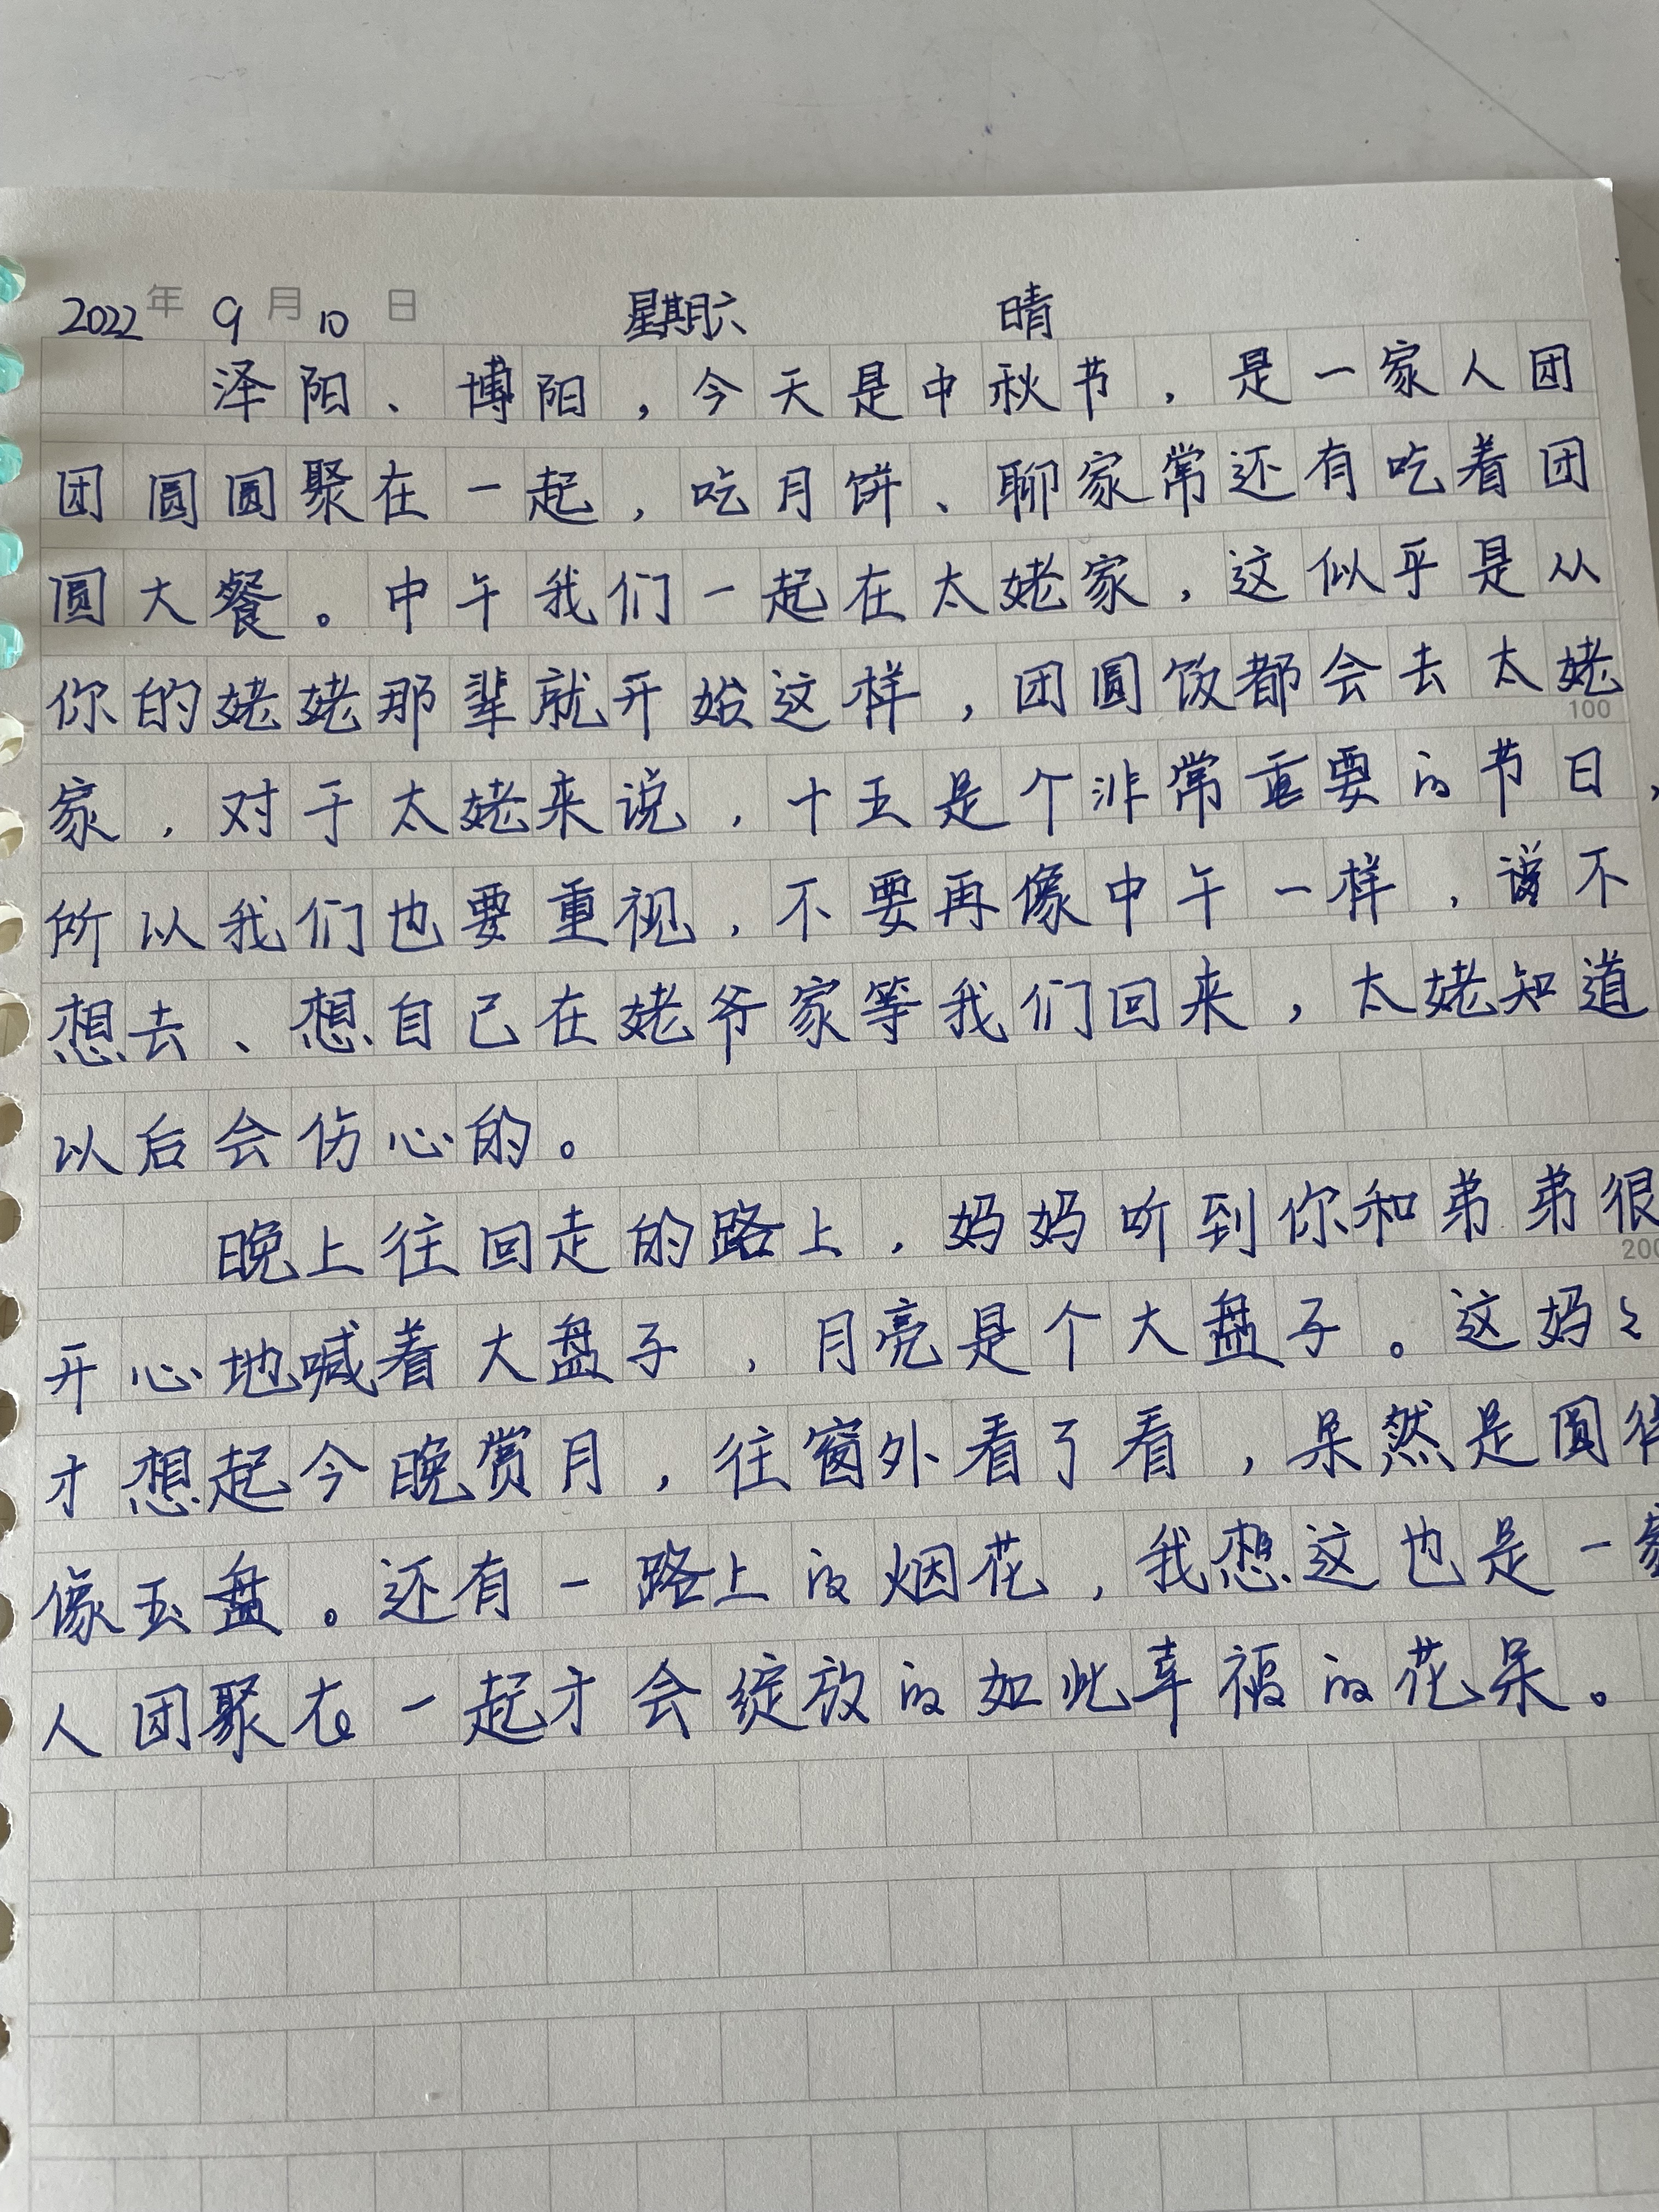 2022年9月10日 星期六 晴
泽阳、博阳，今天是中秋节，是一家人团
团圆圆聚在一起，吃月饼、聊家常还有吃着团
圆大餐。中午我们一起在太姥家，这似乎是从
你的姥姥那辈就开始这样，团圆饭都会去太姥
100
家，对于太姥来说，十五是个非常重要的节日，
所以我们也要重视，不要再像中午一样，说不
想去、想自己在姥爷家等我们回来，太姥知道
以后会伤心的。
晚上往回走的路上，妈妈听到你和弟弟很
200
开心地喊着大盘子，月亮是个大盘子。这妈々
才想起今晚赏月，往窗外看了看，果然是圆得
像玉盘。还有一路上的烟花，我想这也是一家
人团聚在一起才会绽放的如此幸福的花朵。